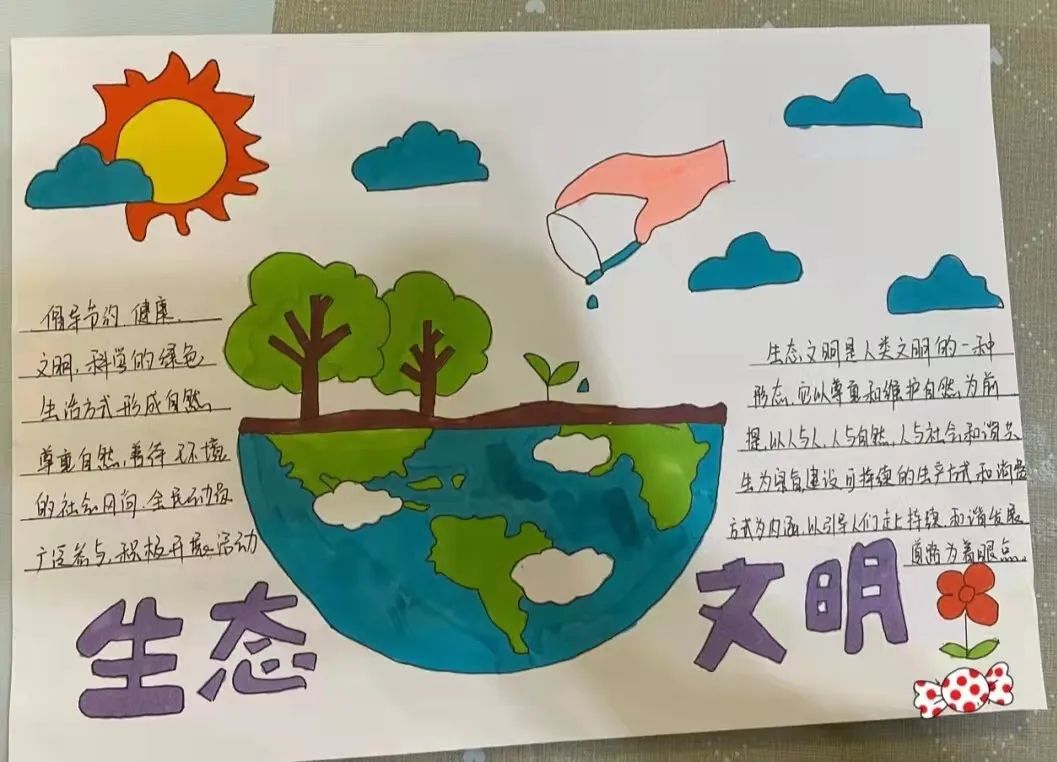 倡导节约、健康、
文明、科学的绿色
生活方式形成自然、
尊重自然,善待环境
的社会风尚.全民动员
广泛参与,积极开展活动
生态文明是人类文明的一种
形态,它以尊重和维护自然为前
提,以人与人、人与自然、人与社会和谐共
生为宗旨,建设可持续的生产方式和消费
方式为内涵,以引导人们走上持续、和谐发展
道路为着眼点。
生态 文明